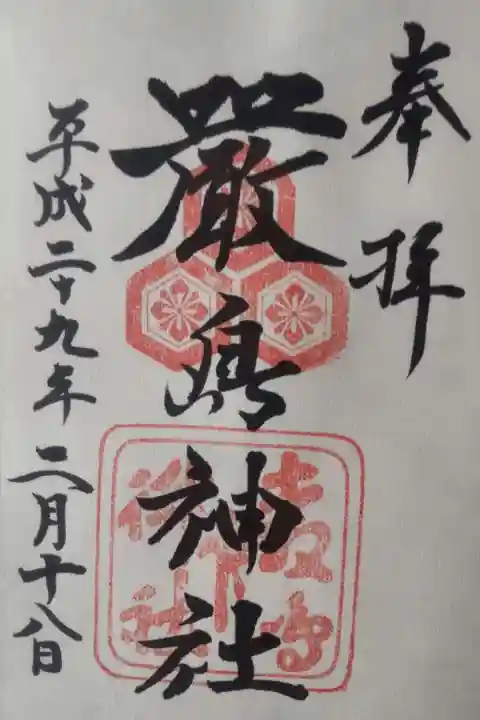 奉拝
厳島神社
平成二十九年二月十八日